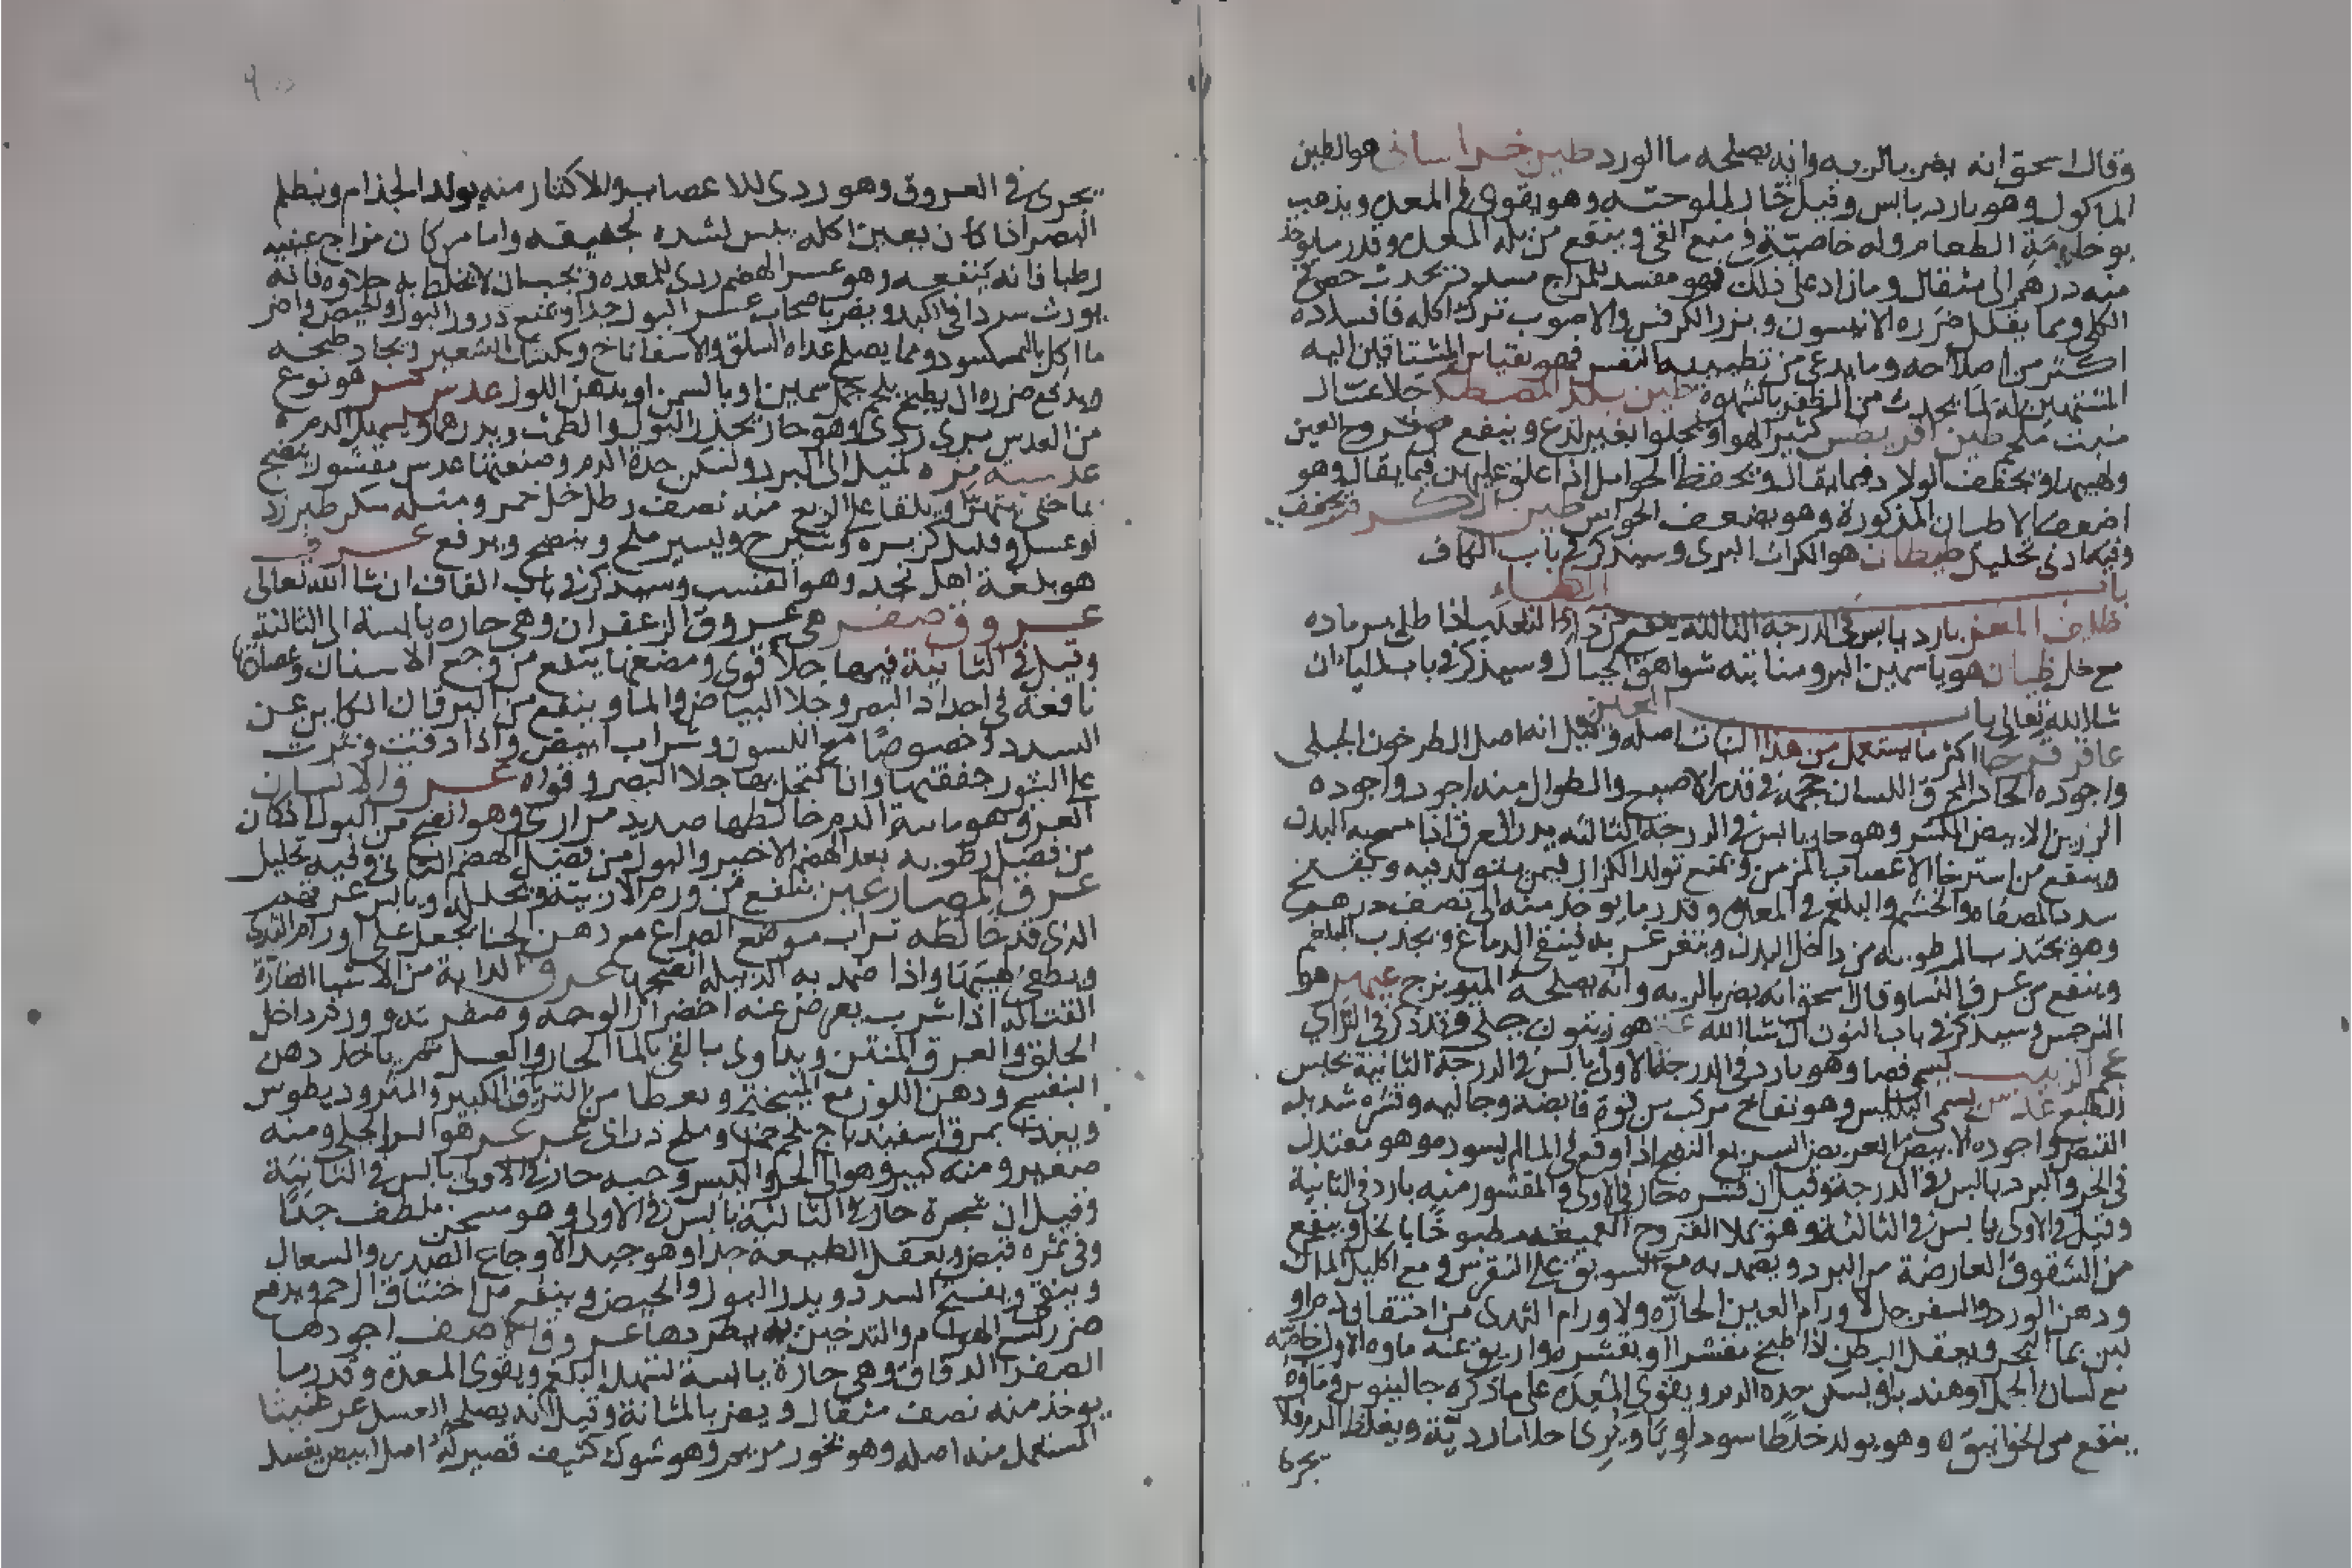 وقال اسحق انه يضر بالريه وانه يصلحه ما الورد طين خراساني هو الطين
الماكول وهو بارد يابس وقيل حار لملوحته وهو يقوي فم المعده ويذهب
بوخامة الطعام وله خاصية في منع القي وينفع من بلة المعدة وقدر ما يوخذ
منه درهم الى مثقال وما زاد على ذلك فهو مفسد للمزاج مسدد يحدث حصى في
الكلى ومما يقلل ضرره الانيسون وبزر الكرفس والاصوب ترك اكله فافساده
اكثر من اصلاحه وما يدعى من تطييبه النفس فهو بقياس المشتاقين اليه
المشتهين له لما يحدث من الظفر بالشهوة طين بلد المصطكى جلا غسال
منبت ملحم طين اقريطس كثير الهوا يجلوا بغير لذع وينفع من قروح العين
ويحفظ الحوامل اذا علق عليهن فيما يقال وهو
اضعف الاطيان المذكورة وهو يضعف الحواس طين الكرم يجفف
وفيه ادنى تحليل طيطان هو الكراث البري وسيذكر في باب الكاف
باب الظاء
ظلف المعز بارد يابس في الدرجة الثالثه ينفع من دا الثعلب اذا طلي برماده
مع خل ظيان هو ياسمين البر ومنابته شواهق الجبال وسيذكر في باب اليا ان
شا الله تعالى باب العين
عاقر قرحا اكثر ما يستعمل من هذا النبات اصله وقيل انه اصل الطرخون الجبلي
واجوده الحاد المحرق اللسان حجمه في قدر الاصبع والطوال منه اجود واجوده
الرزين الابيض المكسر وهو حار يابس في الدرجة الثالثه يدر العرق اذا مسح به البدن
وينفع من استرخا الاعصاب المزمن ويمنع تولد الكزاز فيمن يتولد فيه ويفتح
سدد المصفاه والخشم والبلغم في المعده وقدر ما يوخذ منه الى نصف درهم
وهو يجتذب الرطوبه من داخل البدن ويتغرغر به فينقي الدماغ ويجذب البلغم
وينفع من عرق النسا وقال اسحق انه يضر بالريه وانه يصلحه الميويزج عبهر هو
النرجس وسيذكر في باب النون ان شا الله عتم هو زيتون جبلي وقد ذكر في الزاي
عجم الزبيب يسمى فصا وهو بارد في الدرجة الاولى يابس في الدرجة الثانية يحبس
الطبع عدس يسمى البلس وهو نفاخ مركب من قوة قابضة وجاليه وقشره شديد
القبض واجوده الابيض العريض السريع النضج اذا وقع في الما لم يسوده وهو معتدل
في الحر والبرد يابس في الدرجة وقيل ان قشره حار في الاولى والمقشور منه بارد في الثانية
وقيل في الاولى يابس في الثالثة وهو يملا القروح العميقه مطبوخا بالخل وينفع
من الشقوق العارضة من البرد ويضمد به مع السويق على النقرس ومع اكليل الملك
ودهن الورد والسفرجل لاورام العين الحارة ولاورام الثدى من احتقان دم او
لبن بما البحر ويعقل البطن اذا طبخ مقشرا او بقشره واريق عنه ماوه الاول خاصة
مع لسان الحمل او هندبا ويسكن حدة الدم ويقوي المعدة على ما ذكره جالينوس وماوه
ينفع من الخوانيق وهو يولد خلطا سوداويا ويرى احلاما ردية ويغلظ الدم فلا
يجري
يجري في العروق وهو ردى للاعصاب والاكثار منه يولد الجذام ويظلم
البصر اذا كان بعين اكله يبس لشدة تجفيفه واما من كان مزاج عينيه
رطبا فانه ينفعه وهو عسر الهضم ردى للمعده ويجب ان لا يخلط به حلاوه فانه
يورث سددا في الكبد ويضر باصحاب عسر البول جدا ويمنع درور البول والحيض واضر
ما اكل بالنمكسود ومما يصلح غذاه السلق والاسفاناخ وكشك الشعير ويجاد طبخه
ويدفع ضرره ان يطبخ بلحم حمل سمين او بالسمن او بدهن اللوز عدس مر هو نوع
من العدس بري ردى وهو حار يحدر البول والطمث ويدرهما ويسهل الدم
عدسية مزه تميل الى البرد وتسكن حدة الدم وصنعتها عدس مقشور ينضج
بما حتى يتهرا ويلقا على الربع منه نصف رطل خل خمر ومثله سكر طبرزد
او عسل وقليل كزبره وشيرج ويسير ملح وينضج ويرفع عرفج
هو بلغة اهل نجد وهو القنسب وسيذكر في باب القاف ان شا الله تعالى
عروق صفر هي عروق الزعفران وهي حاره يابسة الى الثالثة
وقيل في الثانية فيها جلا قوى ومضغها ينفع من وجع الاسنان وعصارتها
نافعة في احداد البصر وجلا البياض والما وينفع من اليرقان الكاين عن
السدد خصوصا مع انيسون وشراب ابيض واذا دقت وذرت
على البثور جففتها واذا اكتحل بها جلا البصر وقواه عرق الانسان
العرق هو مايية الدم خالطها صديد مراري وهو انضج من البول اذ كان
من فضل رطوبه بعد الهضم الاخير والبول من فضل الهضم الثاني وفيه تحليل
عرق المصارعين ينفع من ورم الاربية ويحلله او يابس عرقهم
الذى قد خالطه تراب موضع الصراع مع دهن الحنا يجعل على اورام الثدى
ويطفى لهيبها واذا ضمد به الدبيله انضجها عرق الدابة من الاشيا الضارة
القتاله اذا شرب يعرض عنه اخضرار الوجه وصفرته وورم داخل
الحلق والعرق المنتن ويداوى بالقي بالما الحار والعسل ثم ياخذ دهن
البنفسج ودهن اللوز مع الميبختج ويعطا من الترياق الكبير والمثروديطوس
ويغذى بمرق اسفيذباج بلحم حمل وملح دراني عرعر هو السرو الجبلي ومنه
صغير ومنه كبير وهو الى الحر واليبس وحبه حار في الاولى يابس في الثانية
وقيل ان شجره حار في الثالثة يابس في الاولى وهو مسخن ملطف جدا
وفي ثمره قبض ويعقل الطبيعة جدا وهو جيد لاوجاع الصدر والسعال
وينقي ويفتح السدد ويدر البول والحيض وينفع من اختناق الرحم ويدفع
ضرر لسع الهوام والتدخين به يطردها عروق الاصف اجودها
الصفر الدقاق وهي حارة يابسة تسهل البلغم ويقوى المعدة وقدر ما
يوخذ منه نصف مثقال ويضر بالمثانة وقيل انه يصلحه العسل عرطنيثا
المستعمل منه اصله وهو بخور مريم وهو شوك كثيف قصير له اصل ابيض يغسل